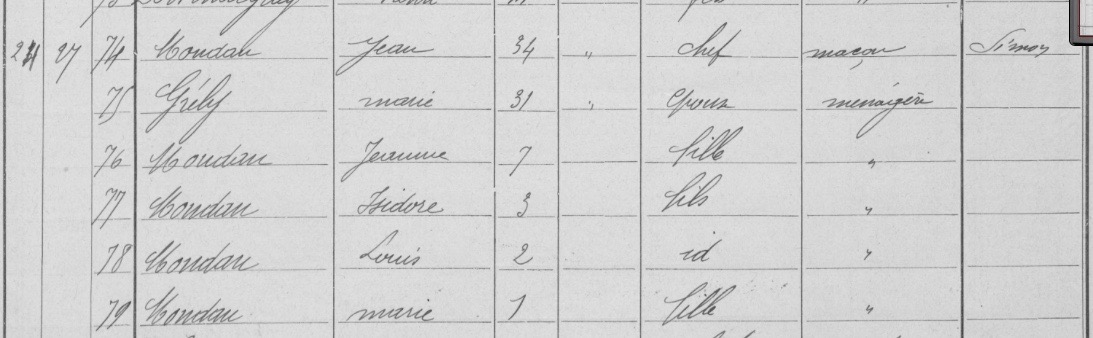 24 27 74 Mondan Jean 34 " chef maçon Simon
75 Grély marie 31 " épouse ménagère
76 Mondan Jeanne 7 fille "
77 Mondan Isidore 3 fils "
78 Mondan Louis 2 id "
79 Mondan marie 1 fille "